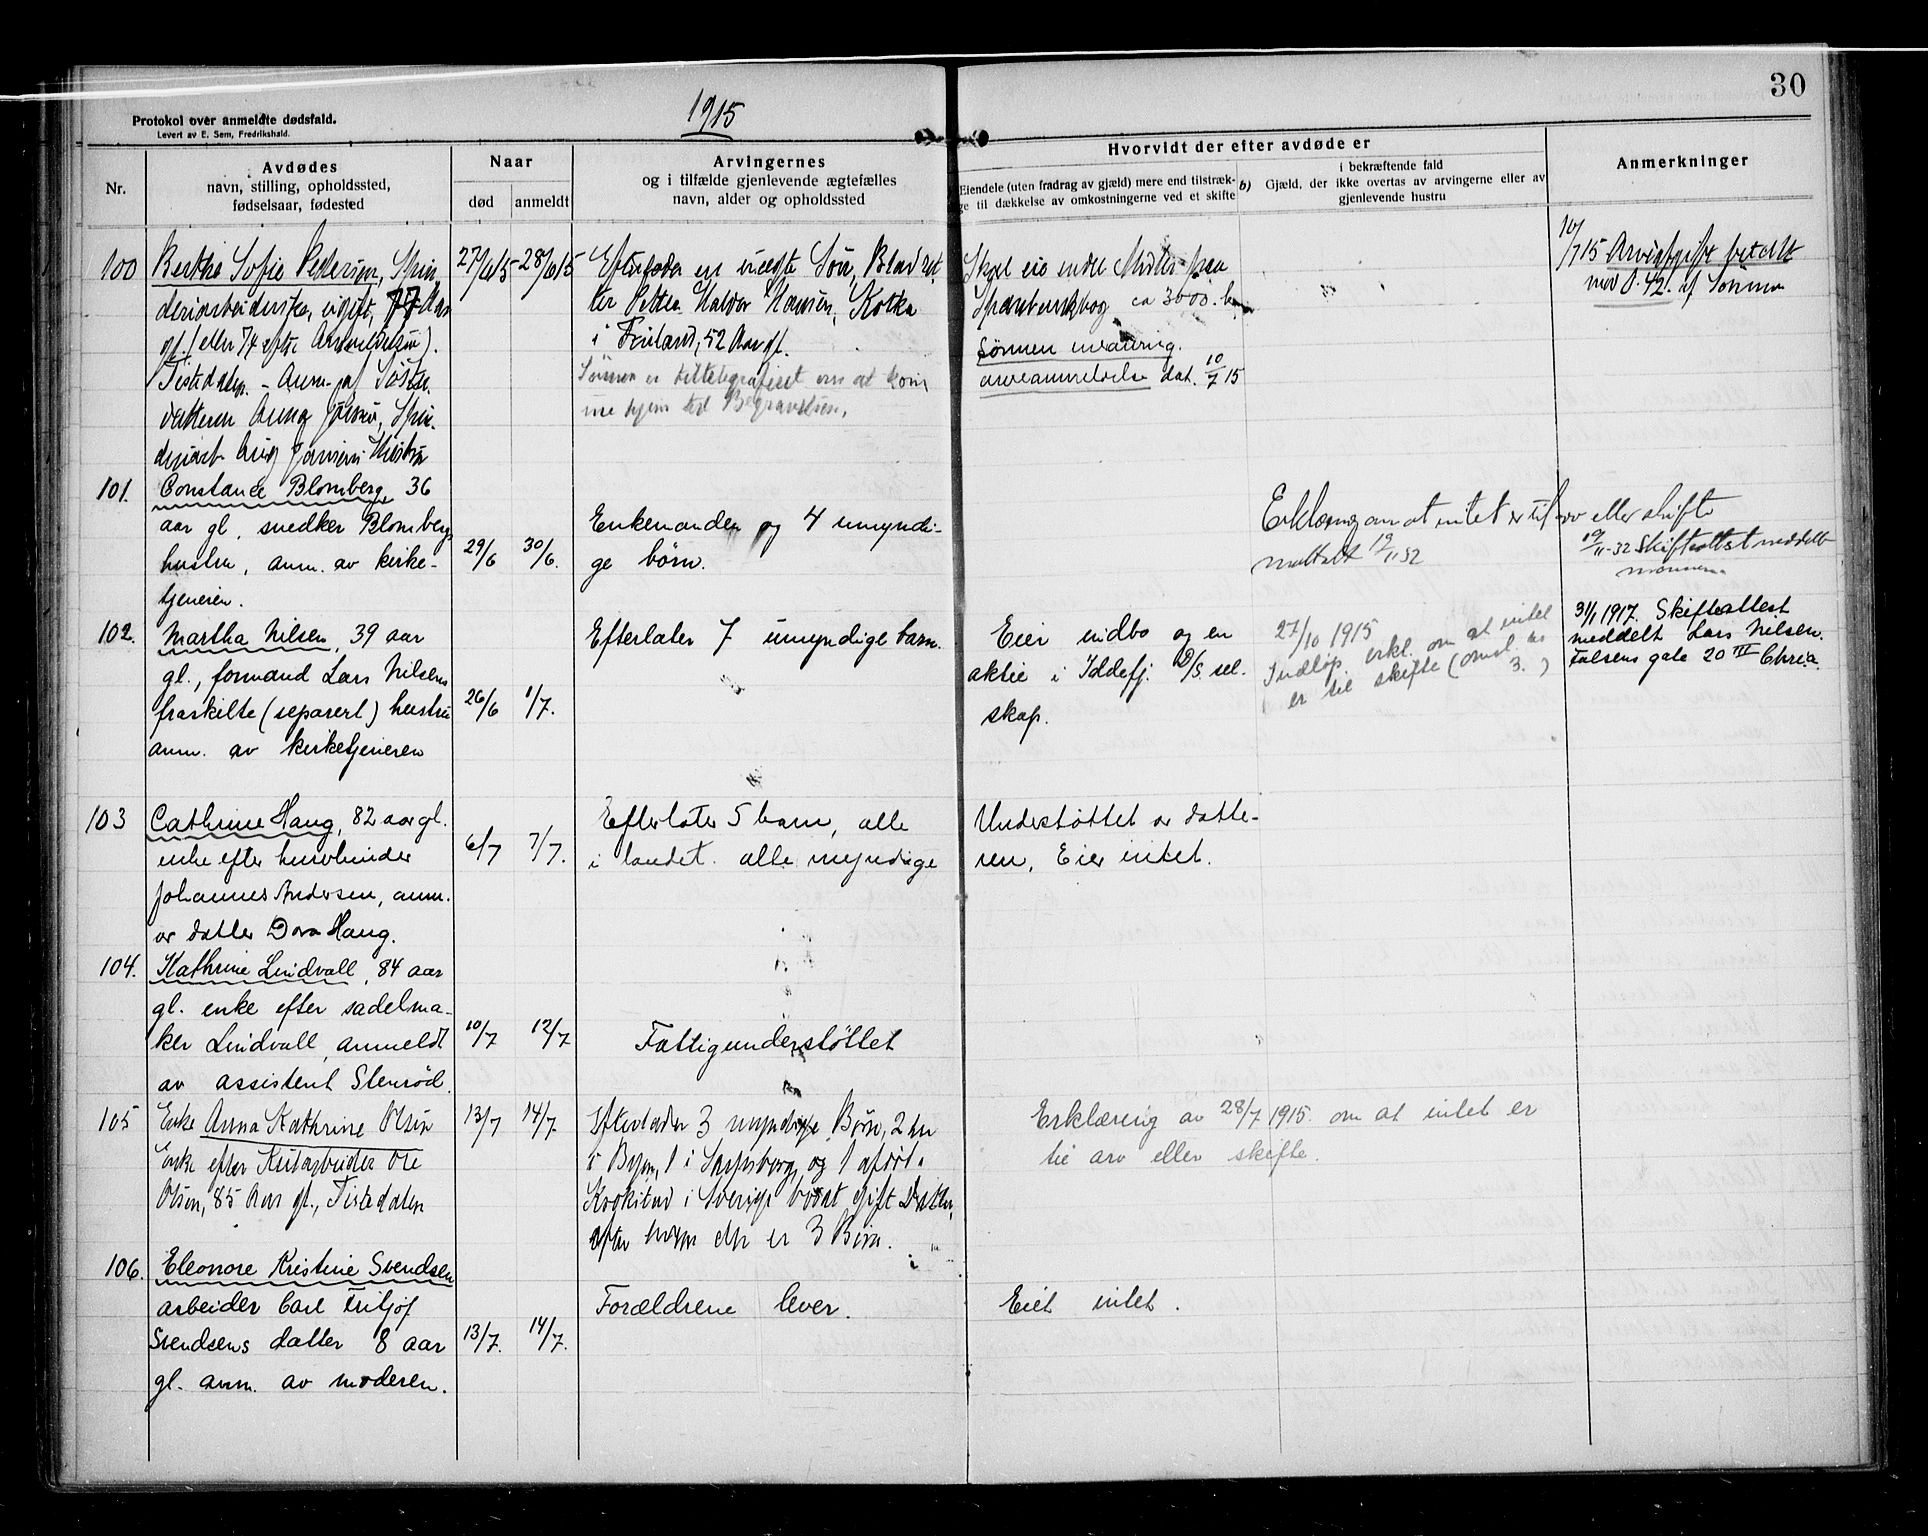 30
1915
Protokol over anmeldte dødsfald.
Levert av E. Sem, Fredrikshald.
Nr.
Avdødes
navn, stilling, opholdssted,
fødselsaar, fødested
Naar
død
anmeldt
Arvingernes
og i tilfælde gjenlevende ægtefælles
navn, alder og opholdssted
Hvorvidt der efter avdøde er
Eiendele (uten fradrag av gjæld) mere end tilstræk-
ge til dækkelse av omkostningerne ved et skifte
b)
i bekræftende fald
Gjæld, der ikke overtas av arvingerne eller av
gjenlevende hustru
Anmerkninger
100
Berthe Sofie Pedersen, Spin
deriarbeiderske, ugift, 77 Aar
gl. (eller 74 efter Anmeldelsen).
Tistedalen. - Anm. af Søster
datteren Anna Jansen, Spin-
deriarb. Aug Jansens Hustru
27/6 15
28/6 15
Efterlader en uægte Søn,
Petter Haldor Hansen, Kotka
i Finland, 52 Aar gl.
Sønnen er telegraferet om at kom
me hjem til Begravelsen.
Skal eie endel Midler paa
Sparebankbog ca 3000. kr
Sønnen enearving.
arveanmeldelse dat. 10/7 15
10/7 15 Arveafgift betalt
med 0.42. af Sønnen
101.
Constance Blomberg, 36
aar gl, snedker Blombergs
hustru, anm. av kirke-
tjeneren.
29/6
30/6.
Enkemanden og 4 umyndi-
ge børn.
Erklæring om at intet er til arv eller skifte
mottatt 19/11 32
19/11-32 Skifteattest meddelt
102.
Martha Nilsen, 39 aar
gl., formand Lars Nilsens
fraskilte (separert) hustru
anm. av kirketjeneren
26/6
1/7.
Efterlater 7 umyndige barn.
Eier indbo og en
aktie i Iddefj. D/S. sel.
skap.
27/10 1915
Indløp. erkl. om at intet
er til skifte (omsl. no
3.)
31/1 1917. Skifteattest
meddelt Lars Nilsen.
Falsens gate 20 III Chria.
103
Cathrine Haug, 82 aar gl.
enke efter
Johannes Andersen, anm.
av datter Dora Haug.
6/7
7/7.
Efterlater 5 barn, alle
i landet. alle myndige
Understøttet av datte-
ren, Eier intet.
104.
Kathrine Lindvall, 84 aar
gl. enke efter sadelma-
ker Lindvall, anmeldt
av assistent Stenrød.
10/7
12/7
Fattigunderstøttet
105
Enke Anna Kathrine Olsen
Enke efter Ole
Olsen, 85 Aar gl., Tistedalen
13/7
14/7.
Efterlader 3 myndige Børn, 2 her
i Byen, 1 i Sarpsborg, og 1 afdød i
i Sverige bosat gift Datter,
efter hvem der er 3 Børn.
Erklæring av 28/7 1915. om at intet er
til arv eller skifte.
106.
Eleonore Kristine Svendsen
arbeider Carl Fritjof
Svendsens datter 8 aar
gl. anm. av moderen.
13/7.
14/7.
Forældrene lever.
Eiet intet.